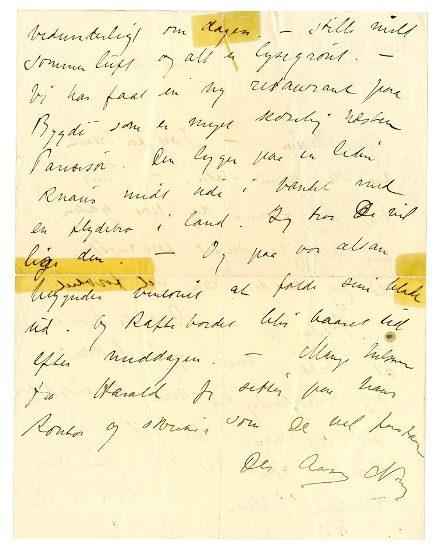 vidunderligt om dagen. – stille mildt
sommerluft og alt er lysegrønt. –
Vi har faat en ny restaurant paa
Bygdø som er meget morsom næsten
Parisisk. Den ligger paa en liten
Knaus midt ude i vandet med
en flydebro i land. Jeg tror De vil
lige den. – Og paa vor altan
begynder at folde sine blade
ud. Og Kaffebordet blir baaret ud
efter middagen. – Mange hilsner
fra Harald Jeg sitter paa hans
Kontor og skriver som De vel
Deres